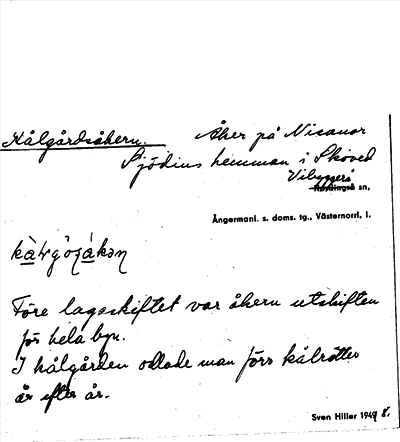 Kålgårdsåkern. Åker på Nicanor
Sjödins hemman i Skoved
Vibyggerå
Nordingrå sn,
Ångermanl. s. doms. tg., Västernorrl. l.
Före lagaskiftet var åkern utskiften
för hela byn.
I kålgården odlade man förr kålrötter
år efter år.
Sven Hiller 1948.